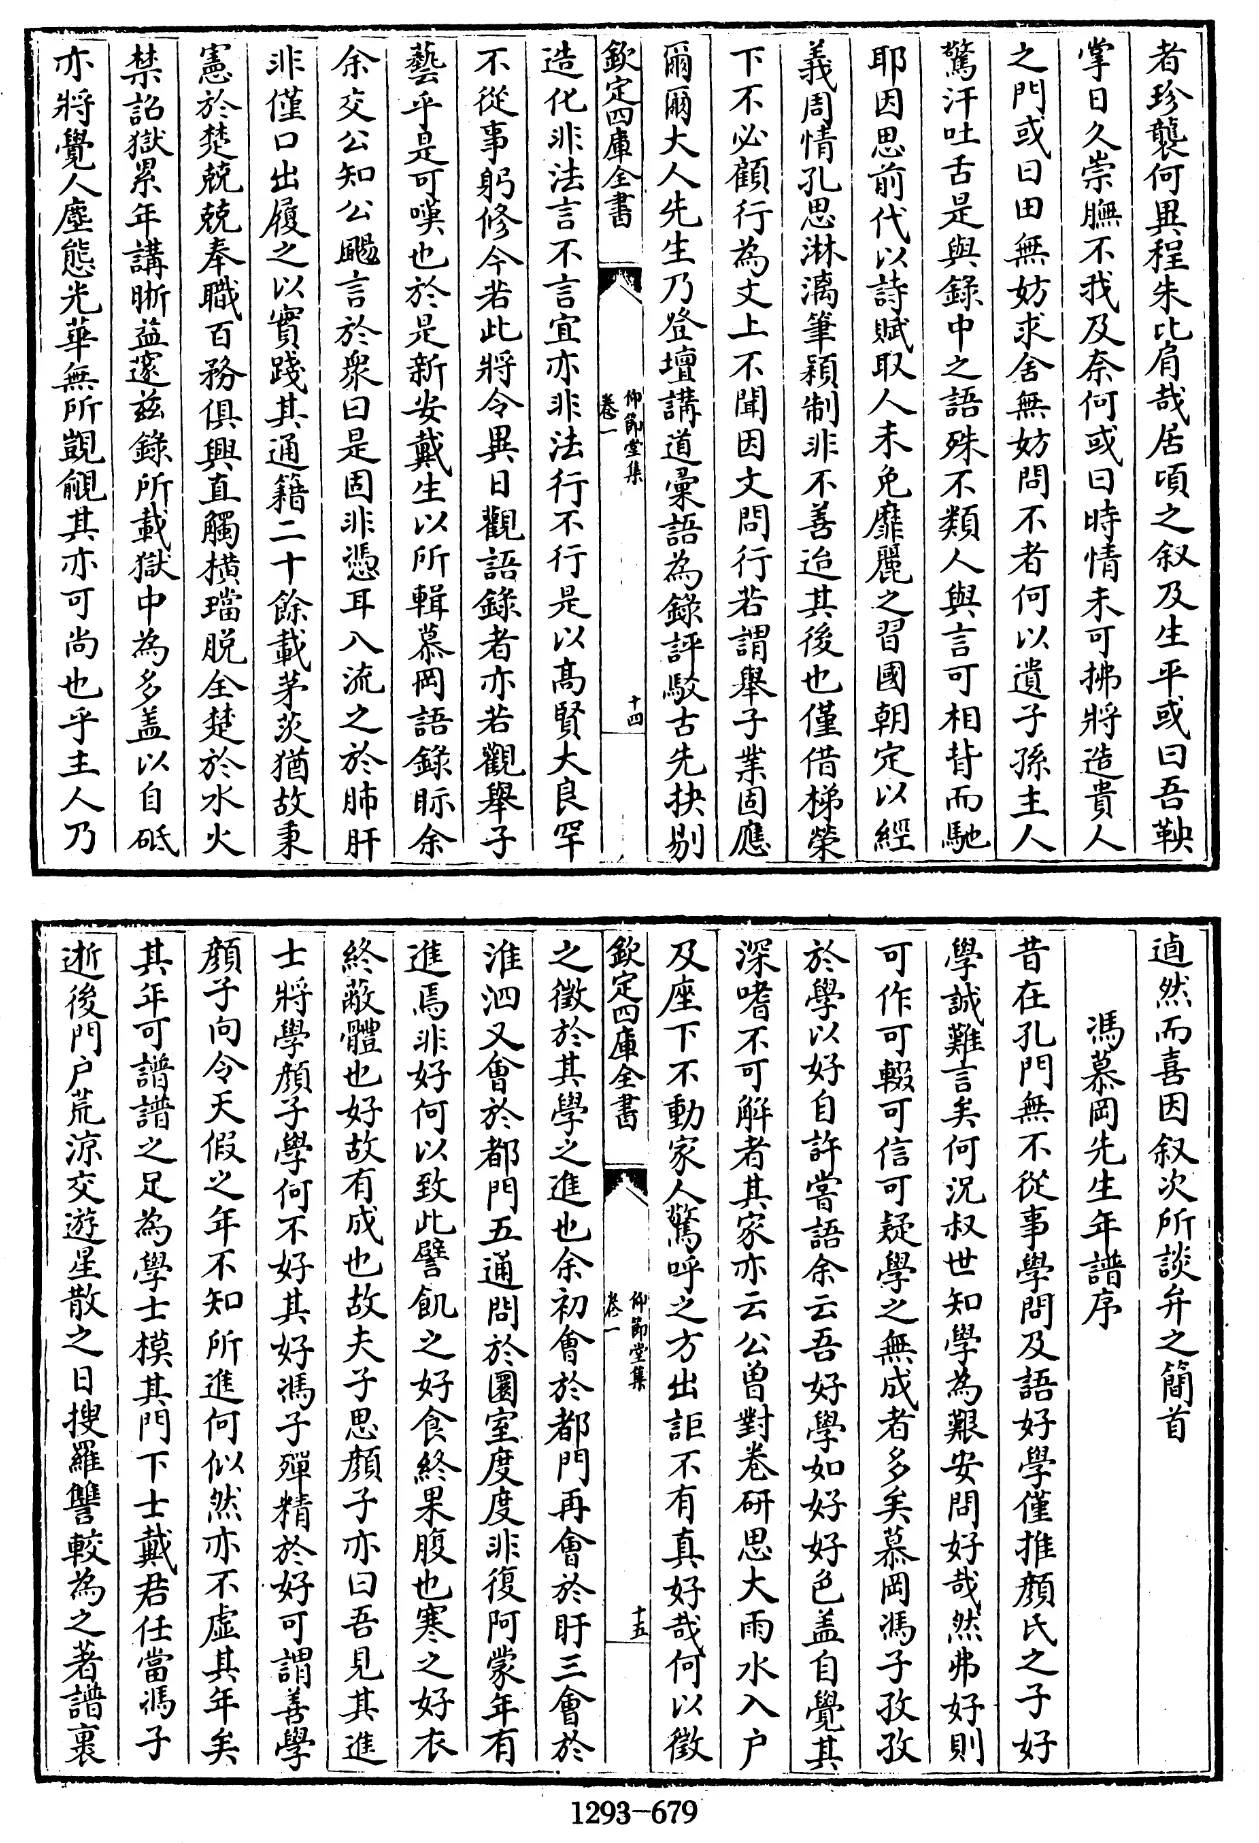 者珍襲何異程朱比肩哉居頃之叙及生平或曰吾鞅
掌日久崇膴不我及奈何或曰時情未可拂將造貴人
之門或曰田無妨求舍無妨問不者何以遺子孫主人
驚汗吐舌是與錄中之語殊不類人與言可相背而馳
耶因思前代以詩賦取人未免靡麗之習國朝定以經
義周情孔思淋漓筆穎制非不善迨其後也僅借梯榮
下不必顧行為文上不聞因文問行若謂舉子業固應
爾爾大人先生乃登壇講道彙語為錄評駁古先抉剔
欽定四庫全書
仰節堂集
卷一
十四
造化非法言不言宜亦非法行不行是以高賢大良罕
不從事躬修今若此將令異日觀語錄者亦若觀舉子
藝乎是可嘆也於是新安戴生以所輯慕岡語錄眎余
余交公知公颺言於衆曰是固非憑耳入流之於肺肝
非僅口出履之以實踐其通籍二十餘載茅茨猶故秉
憲於楚兢兢奉職百務俱興直觸横璫脱全楚於水火
禁詔獄累年講晣益邃兹錄所載獄中為多盖以自砥
亦將覺人塵態光華無所覬覦其亦可尚也乎主人乃
逌然而喜因叙次所談弁之簡首
馮慕岡先生年譜序
昔在孔門無不從事學問及語好學僅推顔氏之子好
學誠難言矣何況叔世知學為艱安問好哉然弗好則
可作可輟可信可疑學之無成者多矣慕岡馮子孜孜
於學以好自許嘗語余云吾好學如好好色盖自覺其
深嗜不可解者其家亦云公曾對卷研思大雨水入户
及座下不動家人驚呼之方出詎不有真好哉何以徵
欽定四庫全書
仰節堂集
卷一
十五
之徵於其學之進也余初會於都門再會於盱三會於
淮泗又會於都門五通問於圜室度度非復阿蒙年有
進焉非好何以致此譬飢之好食終果腹也寒之好衣
終蔽體也好故有成也故夫子思顔子亦曰吾見其進
士將學顔子學何不好其好馮子殫精於好可謂善學
顔子向令天假之年不知所進何似然亦不虚其年矣
其年可譜譜之足為學士模其門下士戴君任當馮子
逝後門户荒涼交遊星散之日搜羅讐較為之著譜裏
1293-679